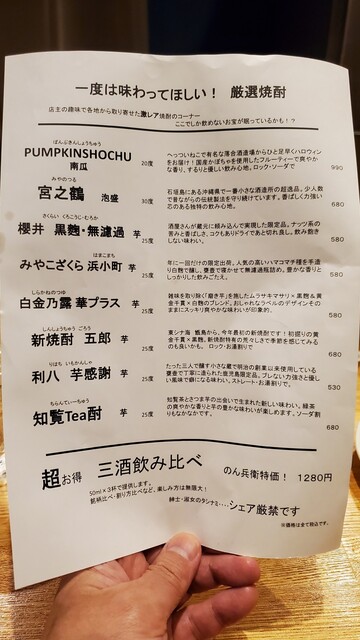 一度は味わってほしい！ 厳選焼酎
店主の趣味で各地から取り寄せた激レア焼酎のコーナー
ここでしか飲めないお宝が眠っているかも！？
ぱんぷきんしょうちゅう
PUMPKINSHOCHU
南瓜
20度
へっついねこで有名な落合酒造場からひと足早くハロウィン
をお届け！国産かぼちゃを使用したフルーティーで爽やか
な香り、するりと優しい飲み心地。ロック・ソーダで
990
みやのつる
宮之鶴 泡盛
30度
石垣島にある沖縄県で一番小さな酒造所の超逸品。少人数
で昔ながらの伝統製法を守り続けています。香ばしく力強い
芯のある独特の飲み心地。
680
さくらい くろこうじ・むろか
櫻井 黒麹・無濾過 芋
25度
酒屋さんが蔵元に頼み込んで実現した限定品。ナッツ系の
苦みと香ばしさ、コクもありドライであと切れ良し。飲み飽き
しない味わい。
580
はままち
みやこざくら 浜小町 芋
25度
年に一回だけの限定出荷。人気の高いハマコマチ種を手造
り白麹で醸し、甕壺で寝かせて無濾過瓶詰め。豊かな香りと
しっかりした飲みごたえ。
580
しらかねのつゆ
白金乃露 華プラス 芋
25度
雑味を取り除く「磨き芋」を携したムラサキマサリ×黒麹＆黄
金千貫×白麹のブレンド。おしゃれなラベルのデザインその
ままにスッキリ爽やかな味わいが印象的。
580
しんしょうちゅう ごろう
新焼酎 五郎 芋
25度
東シナ海 甑島から、今年最初の新焼酎です！初掘りの黄
金千貫×黒麹。新焼酎特有の荒々しさで季節を感じてみる
のも良いかも。 ロック・お湯割りで
680
りはち いもかんしゃ
利八 芋感謝 芋
25度
たった三人で醸す小さな蔵で明治の創業以来使用している
甕壺で丁寧に造られた鹿児島限定品。ブレない力強さと優し
い風味で癖になる味わい。ストレート・お湯割りで。
530
ちらんてぃーちゅう
知覧Tea酎 芋
25度
知覧茶とさつま芋の出会いで生まれた新しい味わい。緑茶
の爽やかな香りと芋の豊かな味わいが楽しめます。ソーダ割
りもなかなかです。
680
超お得 三酒飲み比べ のん兵衛特価！ 1280円
50ml×3杯で提供します。
銘柄比べ・割り方比べなど、楽しみ方は無限大！
紳士・淑女のタシナミ‥‥シェア厳禁です
※価格は全て税込です。